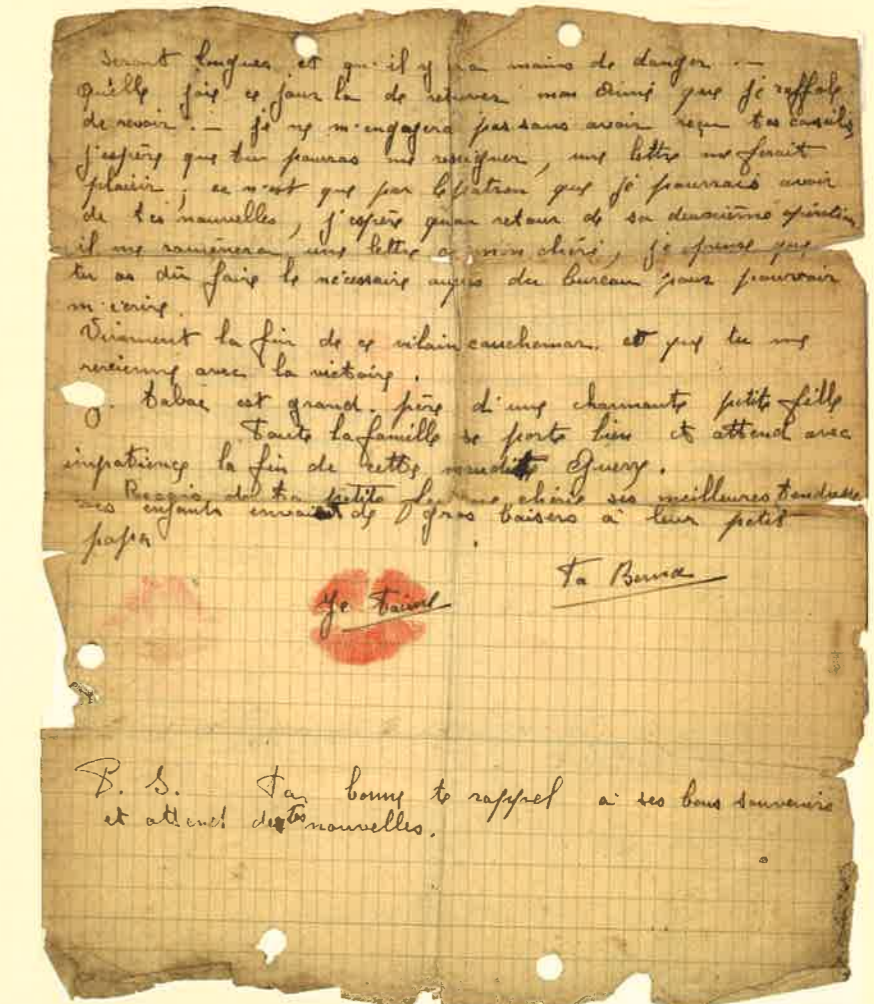 seront longues et qu'il y ura moins de danger. —
Quelle joie ce jour la de retrouver mon Aimé que je raffole
de revoir. — je ne m'engagera pas sans avoir reçu tes conseils,
j'espère que tu pourras me renseigner, une lettre me ferait
plaisir, ce n'est que par le patron que je pourrais avoir
de tes nouvelles, j'espère qu'au retour de sa deuxième opération
il me ramènera une lettre a mon chéri, je pense que
tu as dû faire le nécessaire auprès du bureau pour pouvoir
m'écrire.
Vivement la fin de ce vilain cauchemar. et que tu me
revienne avec la victoire.
tabac est grand. père d'une charmante petite fille
Toute la famille se porte bien et attend avec
impatience la fin de cette maudite Guerre.
Reçois de ta petite femme chérie ses meilleures tendresses
enfants envoient de gros baisers à leur petit
papa
Ta
Je t'aime
P. S. Ta bonne te rappel à ses bons souvenirs
et attend de tes nouvelles.